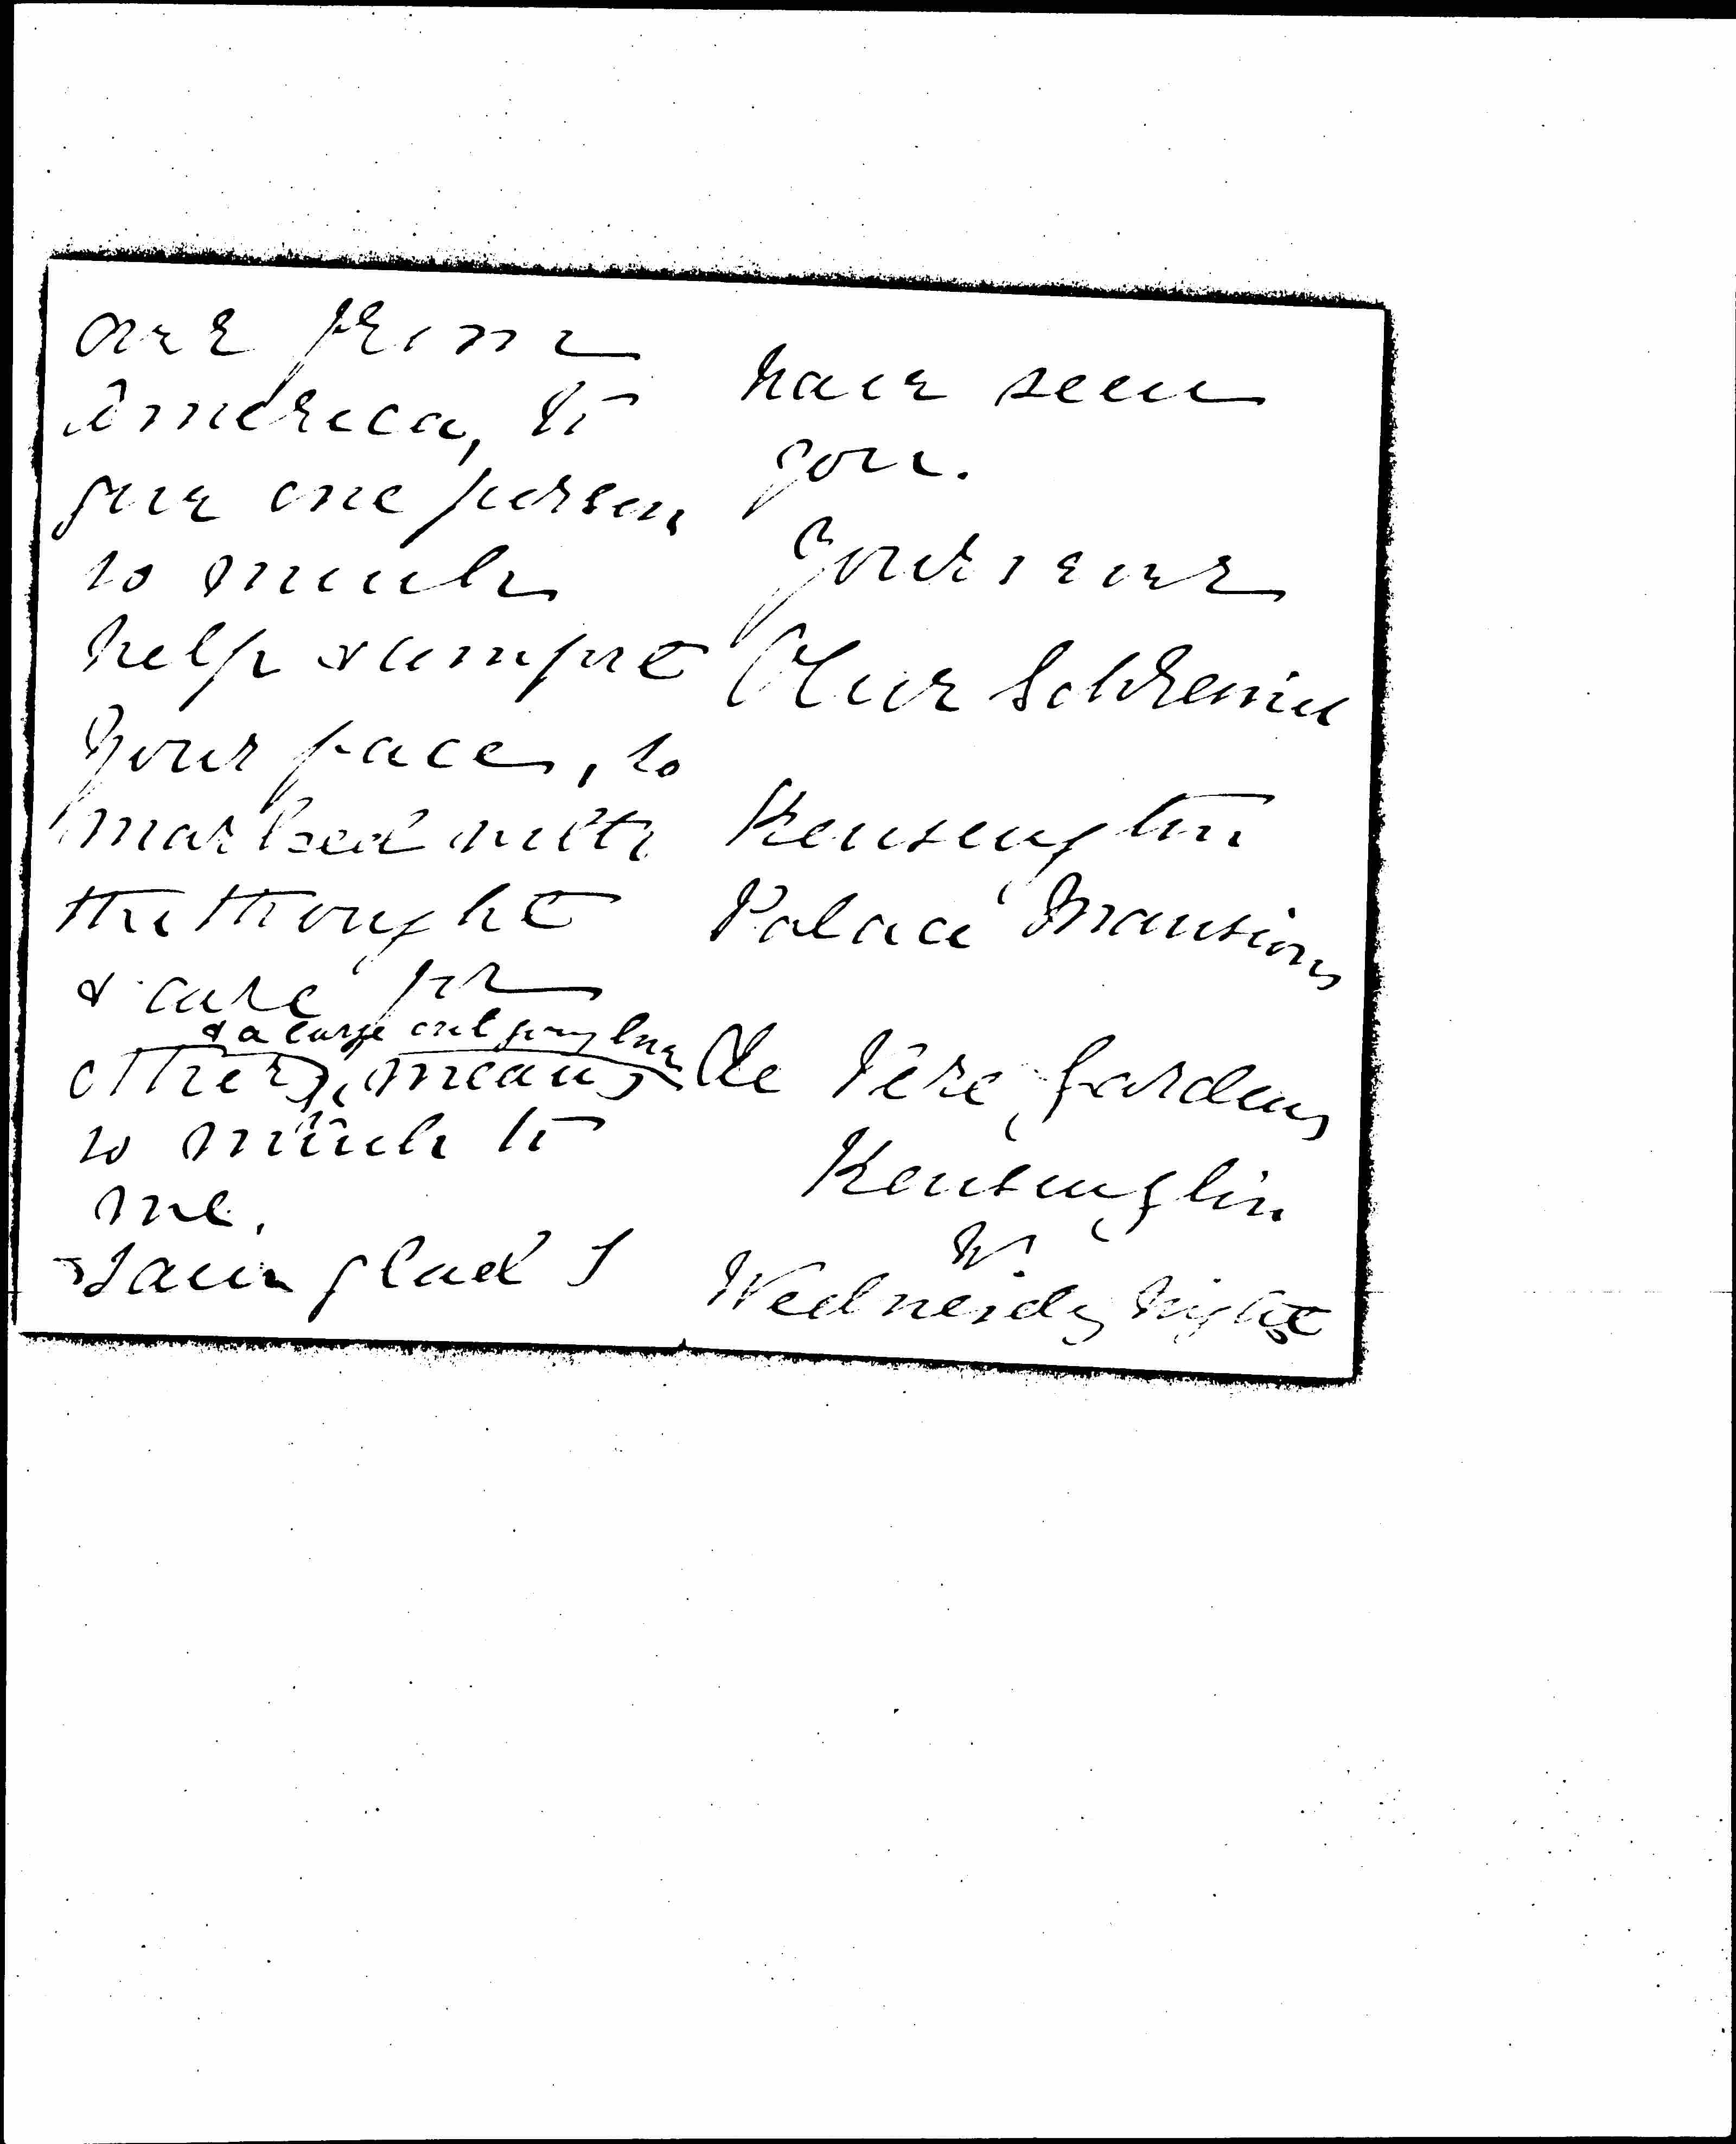 over from
America, to
give one person
so much
help & comfort
Your face, so
marked with
the thought
& care for
& a large outgoing love
others, means
so much to
me.
I am glad I
have seen
you.
Yours ever
Olive Schreiner
Kensington
Palace Mansions
De Vere Gardens
Kensington
W.
Wednesdy night